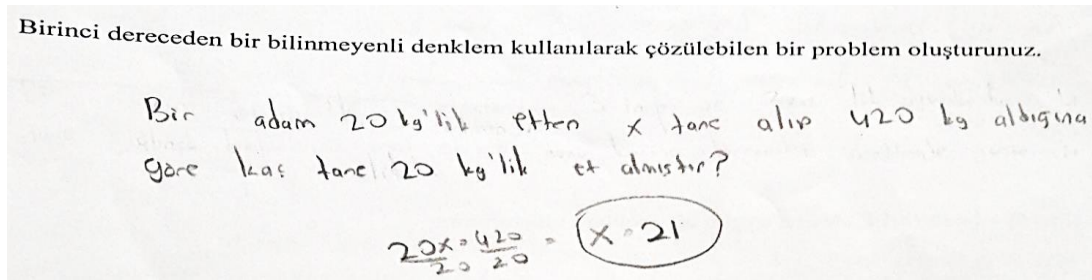 Birinci dereceden bir bilinmeyenli denklem kullanılarak çözülebilen bir problem oluşturunuz.
Bir adam 20 kg'lık etten x tane alıp 420 kg aldığına
göre kaç tane 20 kg'lik et almıştır?
20x/20 = 420/20 = x = 21